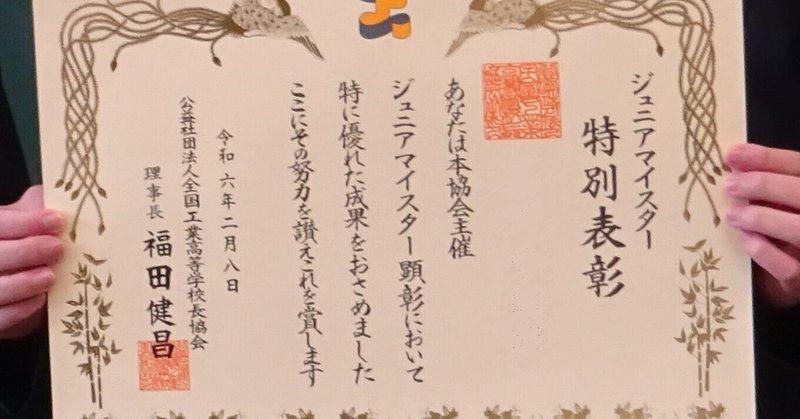 ジュニアマイスター
特別表彰
あなたは本協会主催
ジュニアマイスター顕彰において
特に優れた成果をおさめました
ここにその努力を讃えこれを賞します
令和六年二月八日
公益社団法人全国工業高等学校長協会
理事長 福田健昌